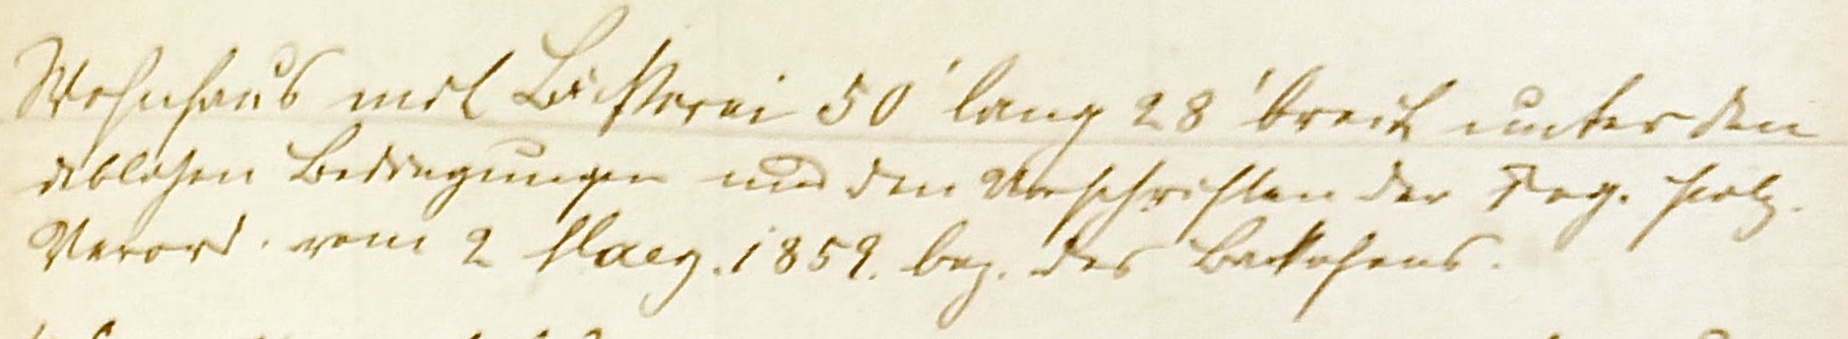 Wohnhaus mit Bäckerei 50' lang 28' breit unter den
üblichen Bedingungen und den Vorschriften der Reg. Poliz.
Verord. vom 2 1859. bez. des Backofens.